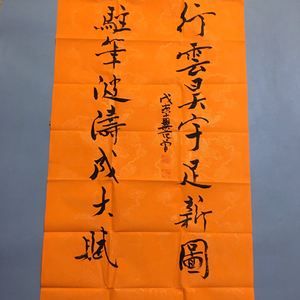 行雲昊宇足新圖
駐筆波濤成大賦